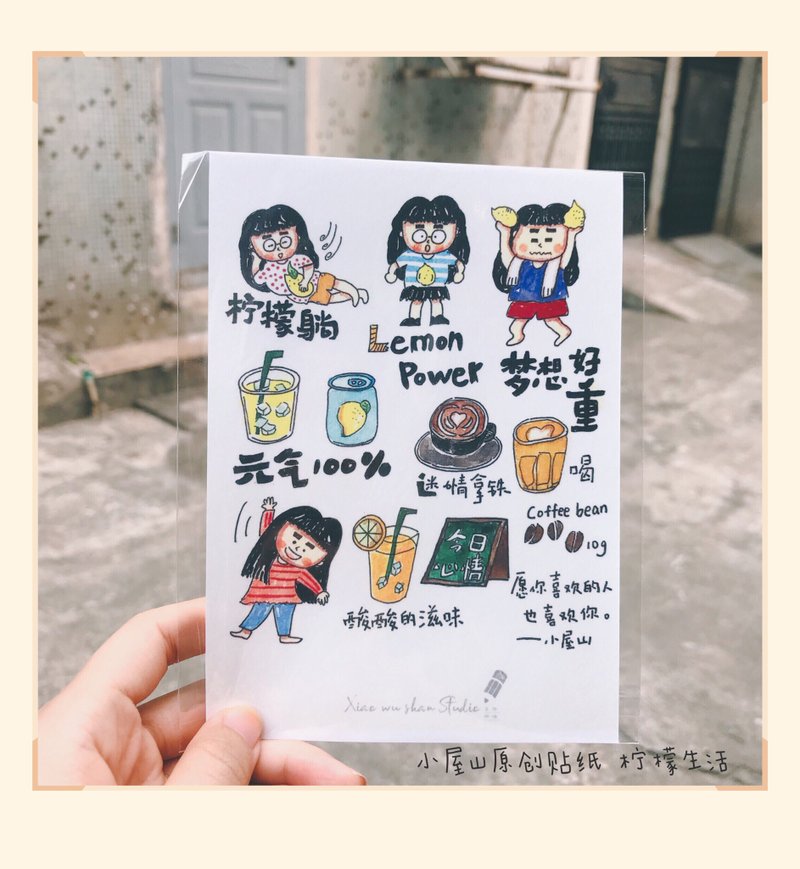 柠檬躺
Lemon
Power
梦想好
重
元气100%
迷情拿铁
喝
Coffee bean
10g
今日
心情
酸酸的滋味
愿你喜欢的人
也喜欢你。
—小屋山
Xiao wu shan Studio
小屋山原创贴纸 柠檬生活